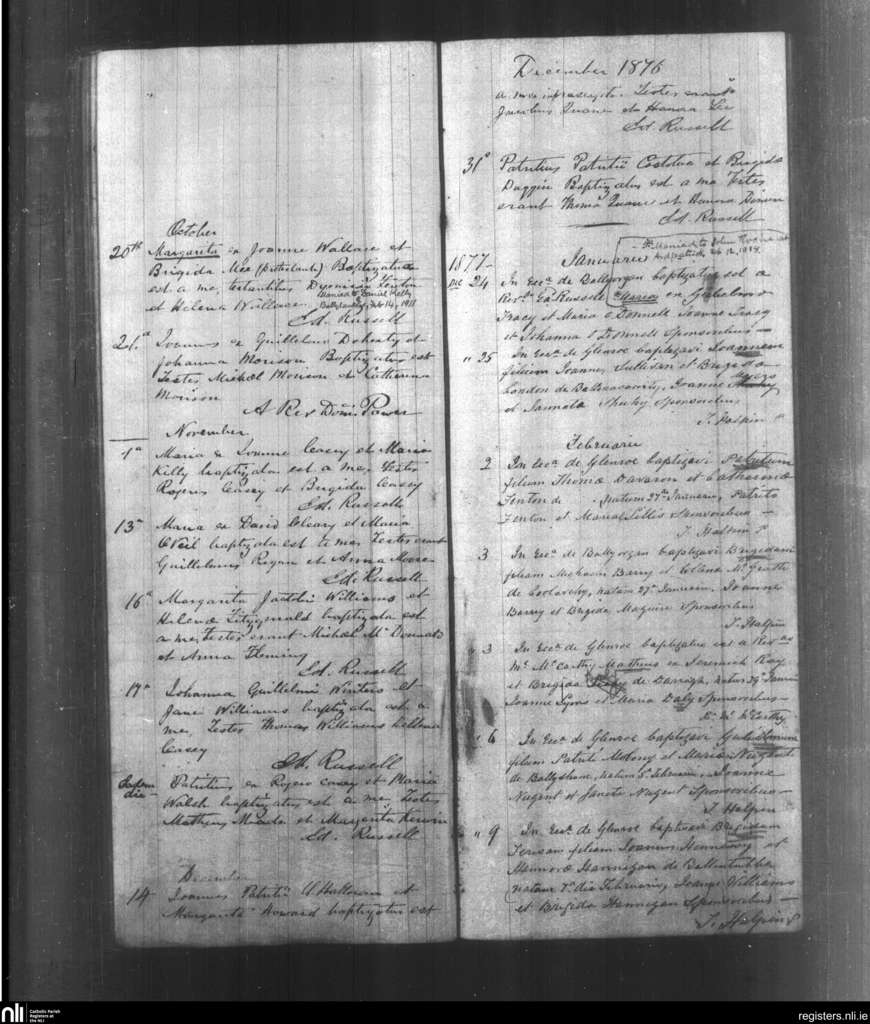 October
20th Margarita ex Joanne Wallace et
Brigida Mee (protestante) Baptizata
est a me, testantibus Fenton
Married to Daniel Kelly
et Helena Wallace
Feb 14, 1911
Ed. Russell
Joannes ex Guillelmo Doherty et
Johanna Morison Baptizatus est
Testes Michael Morison et Catherina
Morison
A Rev Dom Power
November
1a Maria ex Joanne Casey et Maria
Kelly baptizata est a me, Testes
Rogerus Casey et Brigida Casey
Ed. Russell
13a Maria ex David Cleary et Maria
O'Neil baptizata est a me, Testes erant
Guillelmus Regan et Anna Moore
Ed. Russell
16a Margarita Williams et
Helena Fitzgerald baptizata est
a me, Testes erant Michael McDonnald
et Anna Fleming
Ed. Russell
Johanna Guillelmi Winters et
Jane Williams baptizata est a
me, Testes Thomas Williams Hellena
Casey
Ed. Russell
Eadem Patritius ex Rogero Casey et Maria
die Walsh baptizatus est a me, Testes
Matheus Meade et Margarita
Ed. Russell
December
14 Joannes Patritii O'Halloran et
Margarita Howard baptizatus est
December 1876
a me infrascripto. Testes erant
Jacobus Quane et Hanna Lee
Ed. Russell
31a Patritius Patritii Costeloe et Brigida
Duggan Baptizatus est a me Testes
erant Thomas Quane et Hanna
Ed. Russell
Married to John
Feb 12, 1918
1877 Januarii
24 In Ecca de Ballyorgan baptizata est a
Revdo Edo Russell Maria ex Gulielmo
Tracy et Maria O'Donnell Joanne Tracy
et Johanna O'Donnell Sponsoribus
" 25 In Ecca de Glenroe baptizavi Joannem
filium Joannes Sullivan et Brigida
London de Joanne
Myers
et Sponsoribus
T. Halpin
Februarii
2 In Ecca de Glenroe baptizavi Patritium
filium Thomæ Davoron et Catharinæ
Fenton de natum 27th Januarii, Patrito
Fenton et Maria Lillis Sponsoribus
T. Halpin P
3 In Ecca de Ballyorgan baptizavi Brigidam
filiam Michaelis Barry et Mc Grath
de natam 27a Januarii, Joanne
Barry et Brigida Maguire Sponsoribus
T. Halpin
" 3 In Ecca de Glenroe baptizatus est a Revdo
Mr McCarthy Mattheus ex Jeremiah Ray
et Brigida de Darragh, natus 29 Januarii
Joanne Lyons et Maria Daly Sponsoribus
McCarthy
" 6 In Ecca de Glenroe baptizavi Gulielmum
filium Patritii Molony et Mariæ Nugent
de Ballyshane, natum 5 Februarii, Joanne
Nugent et Nugent Sponsoribus
T. Halpin
" 9 In Ecca de Glenroe baptizavi Brigidam
filiam Joannis Hennessy et
Hannigan de
natam 7a die Februarii, Joanne Williams
et Brigida Hannigan Sponsoribus
T. Halpin P
nli
Catholic Parish
Registers at
the NLI
registers.nli.ie